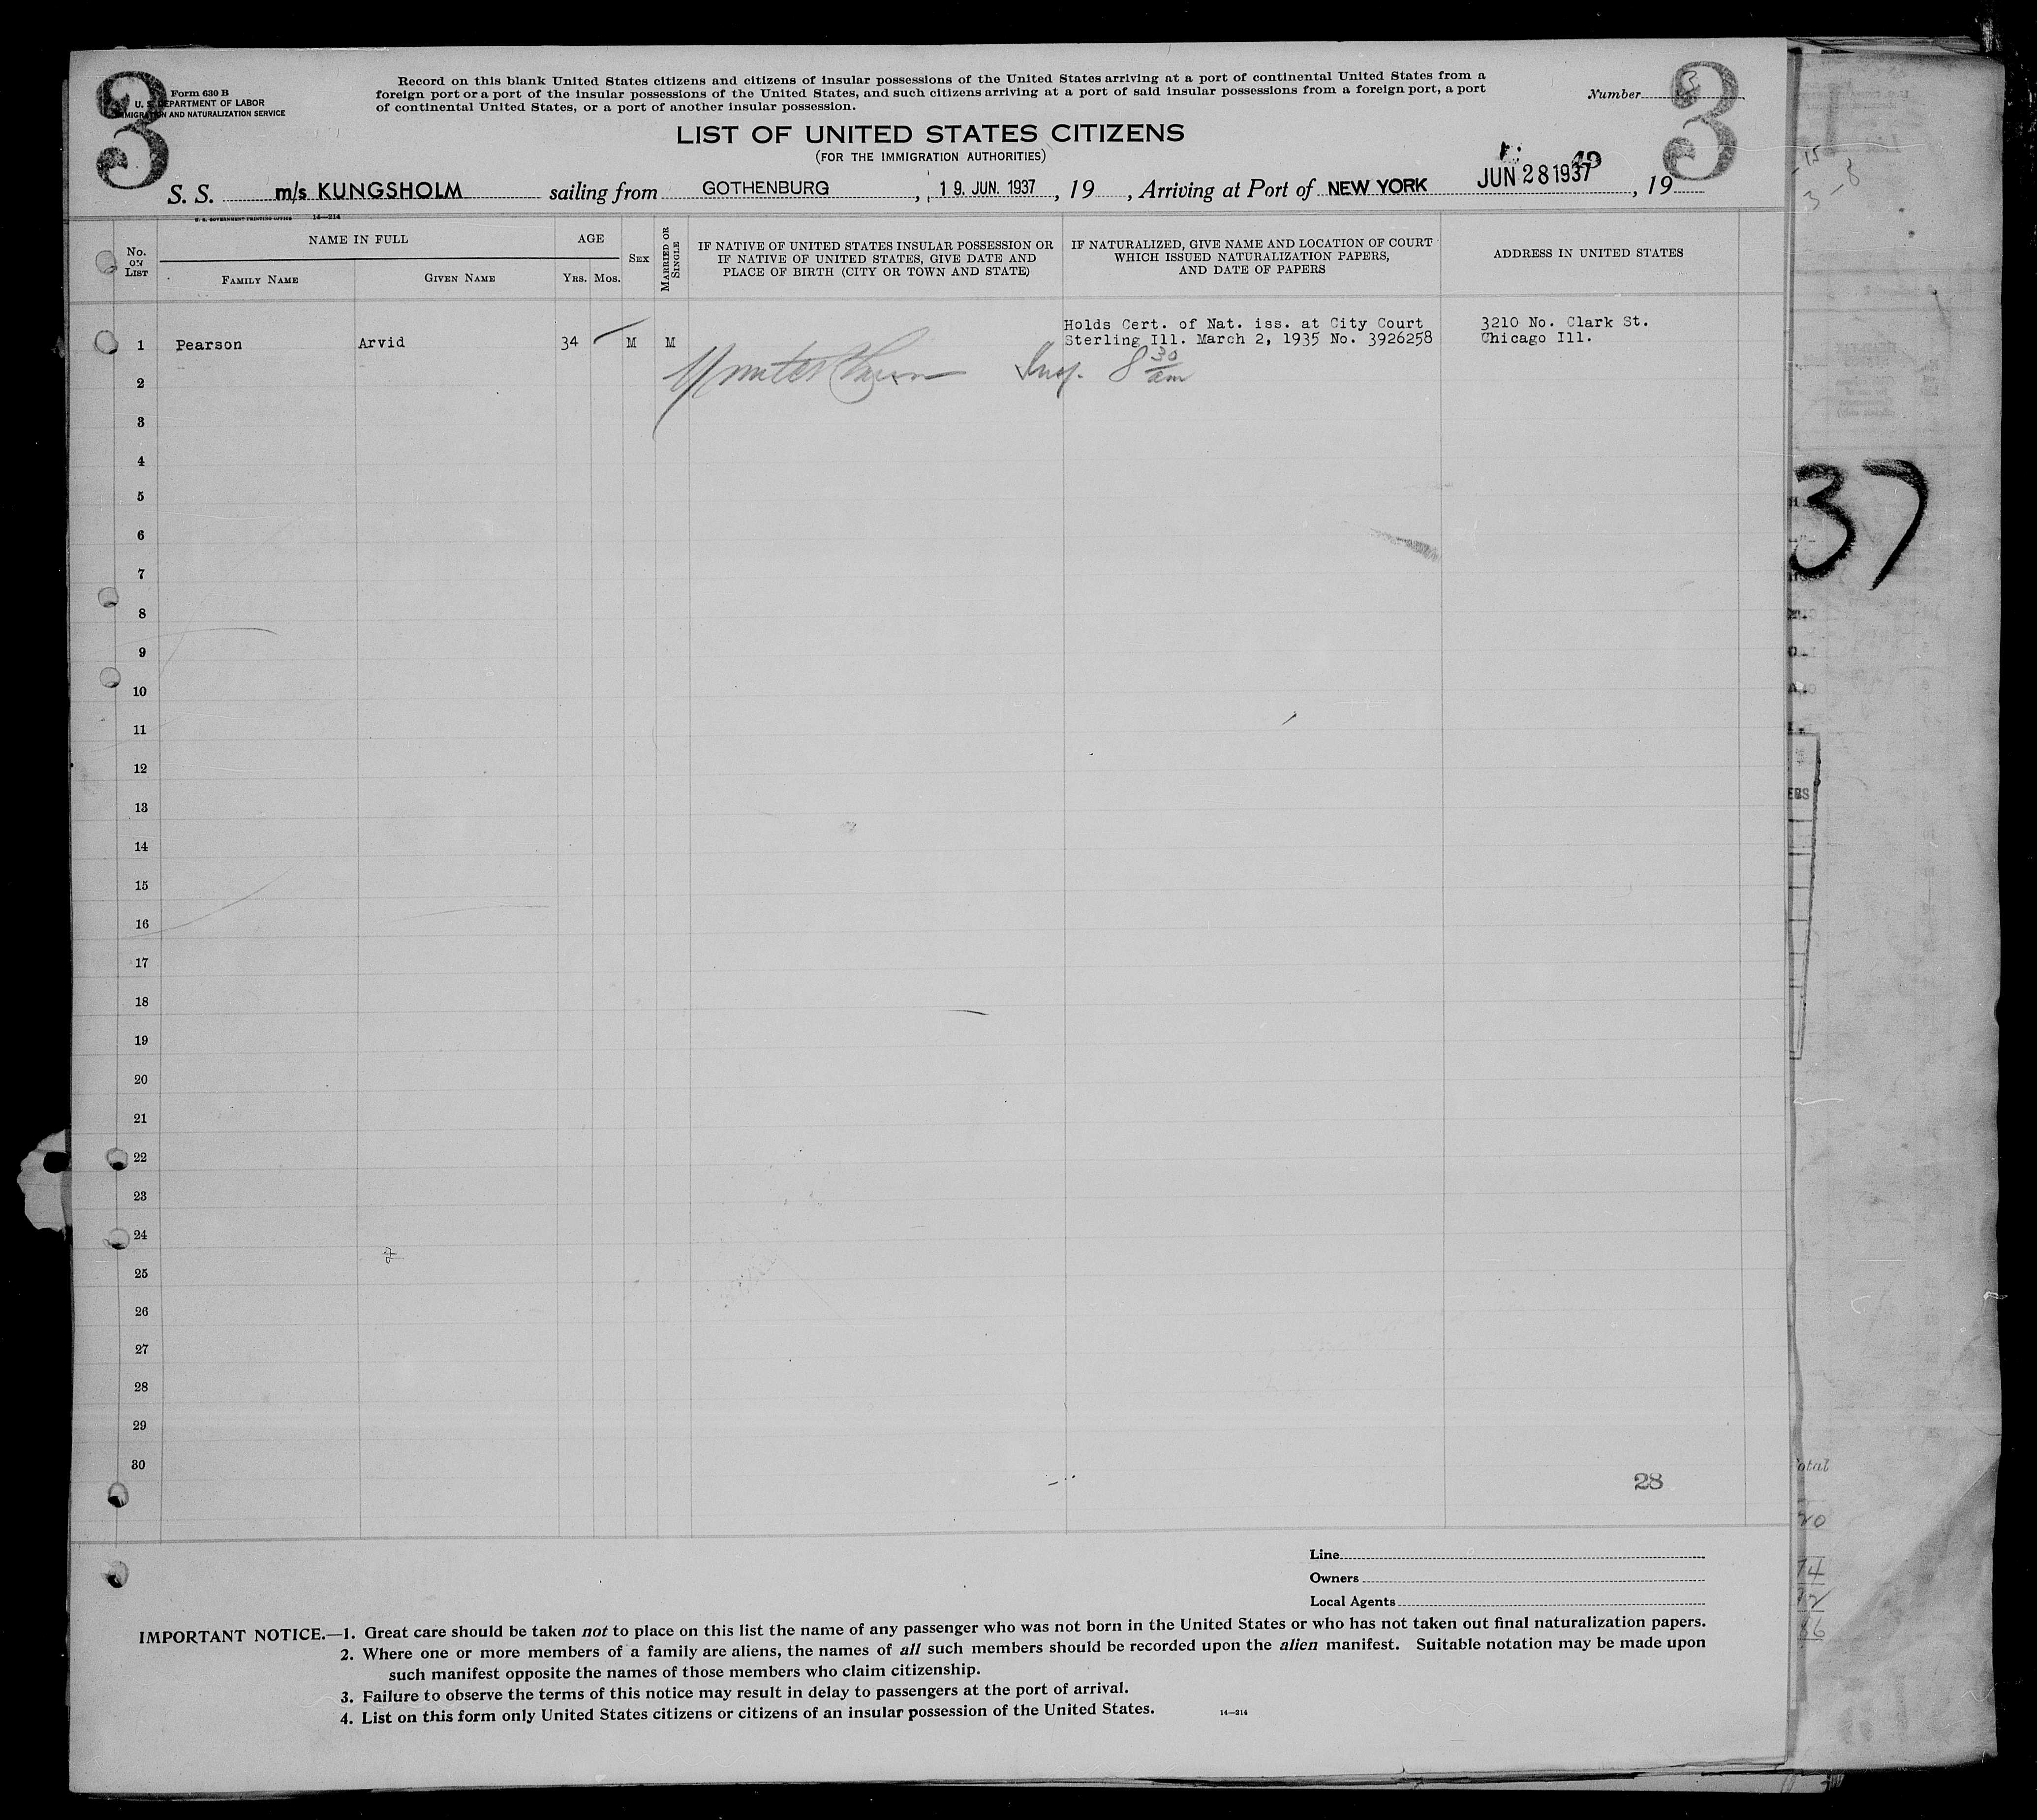 3
Form 630 B
U. S. DEPARTMENT OF LABOR
IMMIGRATION AND NATURALIZATION SERVICE
Record on this blank United States citizens and citizens of insular possessions of the United States arriving at a port of continental United States from a
foreign port or a port of the insular possessions of the United States, and such citizens arriving at a port of said insular possessions from a foreign port, a port
of continental United States, or a port of another insular possession.
Number 3
3
LIST OF UNITED STATES CITIZENS
(FOR THE IMMIGRATION AUTHORITIES)
S. S. m/s KUNGSHOLM sailing from GOTHENBURG, 19. JUN. 1937, 19 , Arriving at Port of NEW YORK JUN 28 1937, 19
U. S. GOVERNMENT PRINTING OFFICE 14—214
No. ON LIST
NAME IN FULL
FAMILY NAME
GIVEN NAME
AGE
YRS. MOS.
SEX
MARRIED OR SINGLE
IF NATIVE OF UNITED STATES INSULAR POSSESSION OR
IF NATIVE OF UNITED STATES, GIVE DATE AND
PLACE OF BIRTH (CITY OR TOWN AND STATE)
IF NATURALIZED, GIVE NAME AND LOCATION OF COURT
WHICH ISSUED NATURALIZATION PAPERS,
AND DATE OF PAPERS
ADDRESS IN UNITED STATES
1 Pearson Arvid 34 M M
Holds Cert. of Nat. iss. at City Court
Sterling Ill. March 2, 1935 No. 3926258
3210 No. Clark St.
Chicago Ill.
Insp. 8 30 am
2
3
4
5
6
7
8
9
10
11
12
13
14
15
16
17
18
19
20
21
22
23
24
25
26
27
28
29
30
28
37
Line
Owners
Local Agents
IMPORTANT NOTICE.—1. Great care should be taken not to place on this list the name of any passenger who was not born in the United States or who has not taken out final naturalization papers.
2. Where one or more members of a family are aliens, the names of all such members should be recorded upon the alien manifest. Suitable notation may be made upon
such manifest opposite the names of those members who claim citizenship.
3. Failure to observe the terms of this notice may result in delay to passengers at the port of arrival.
4. List on this form only United States citizens or citizens of an insular possession of the United States.
14—214